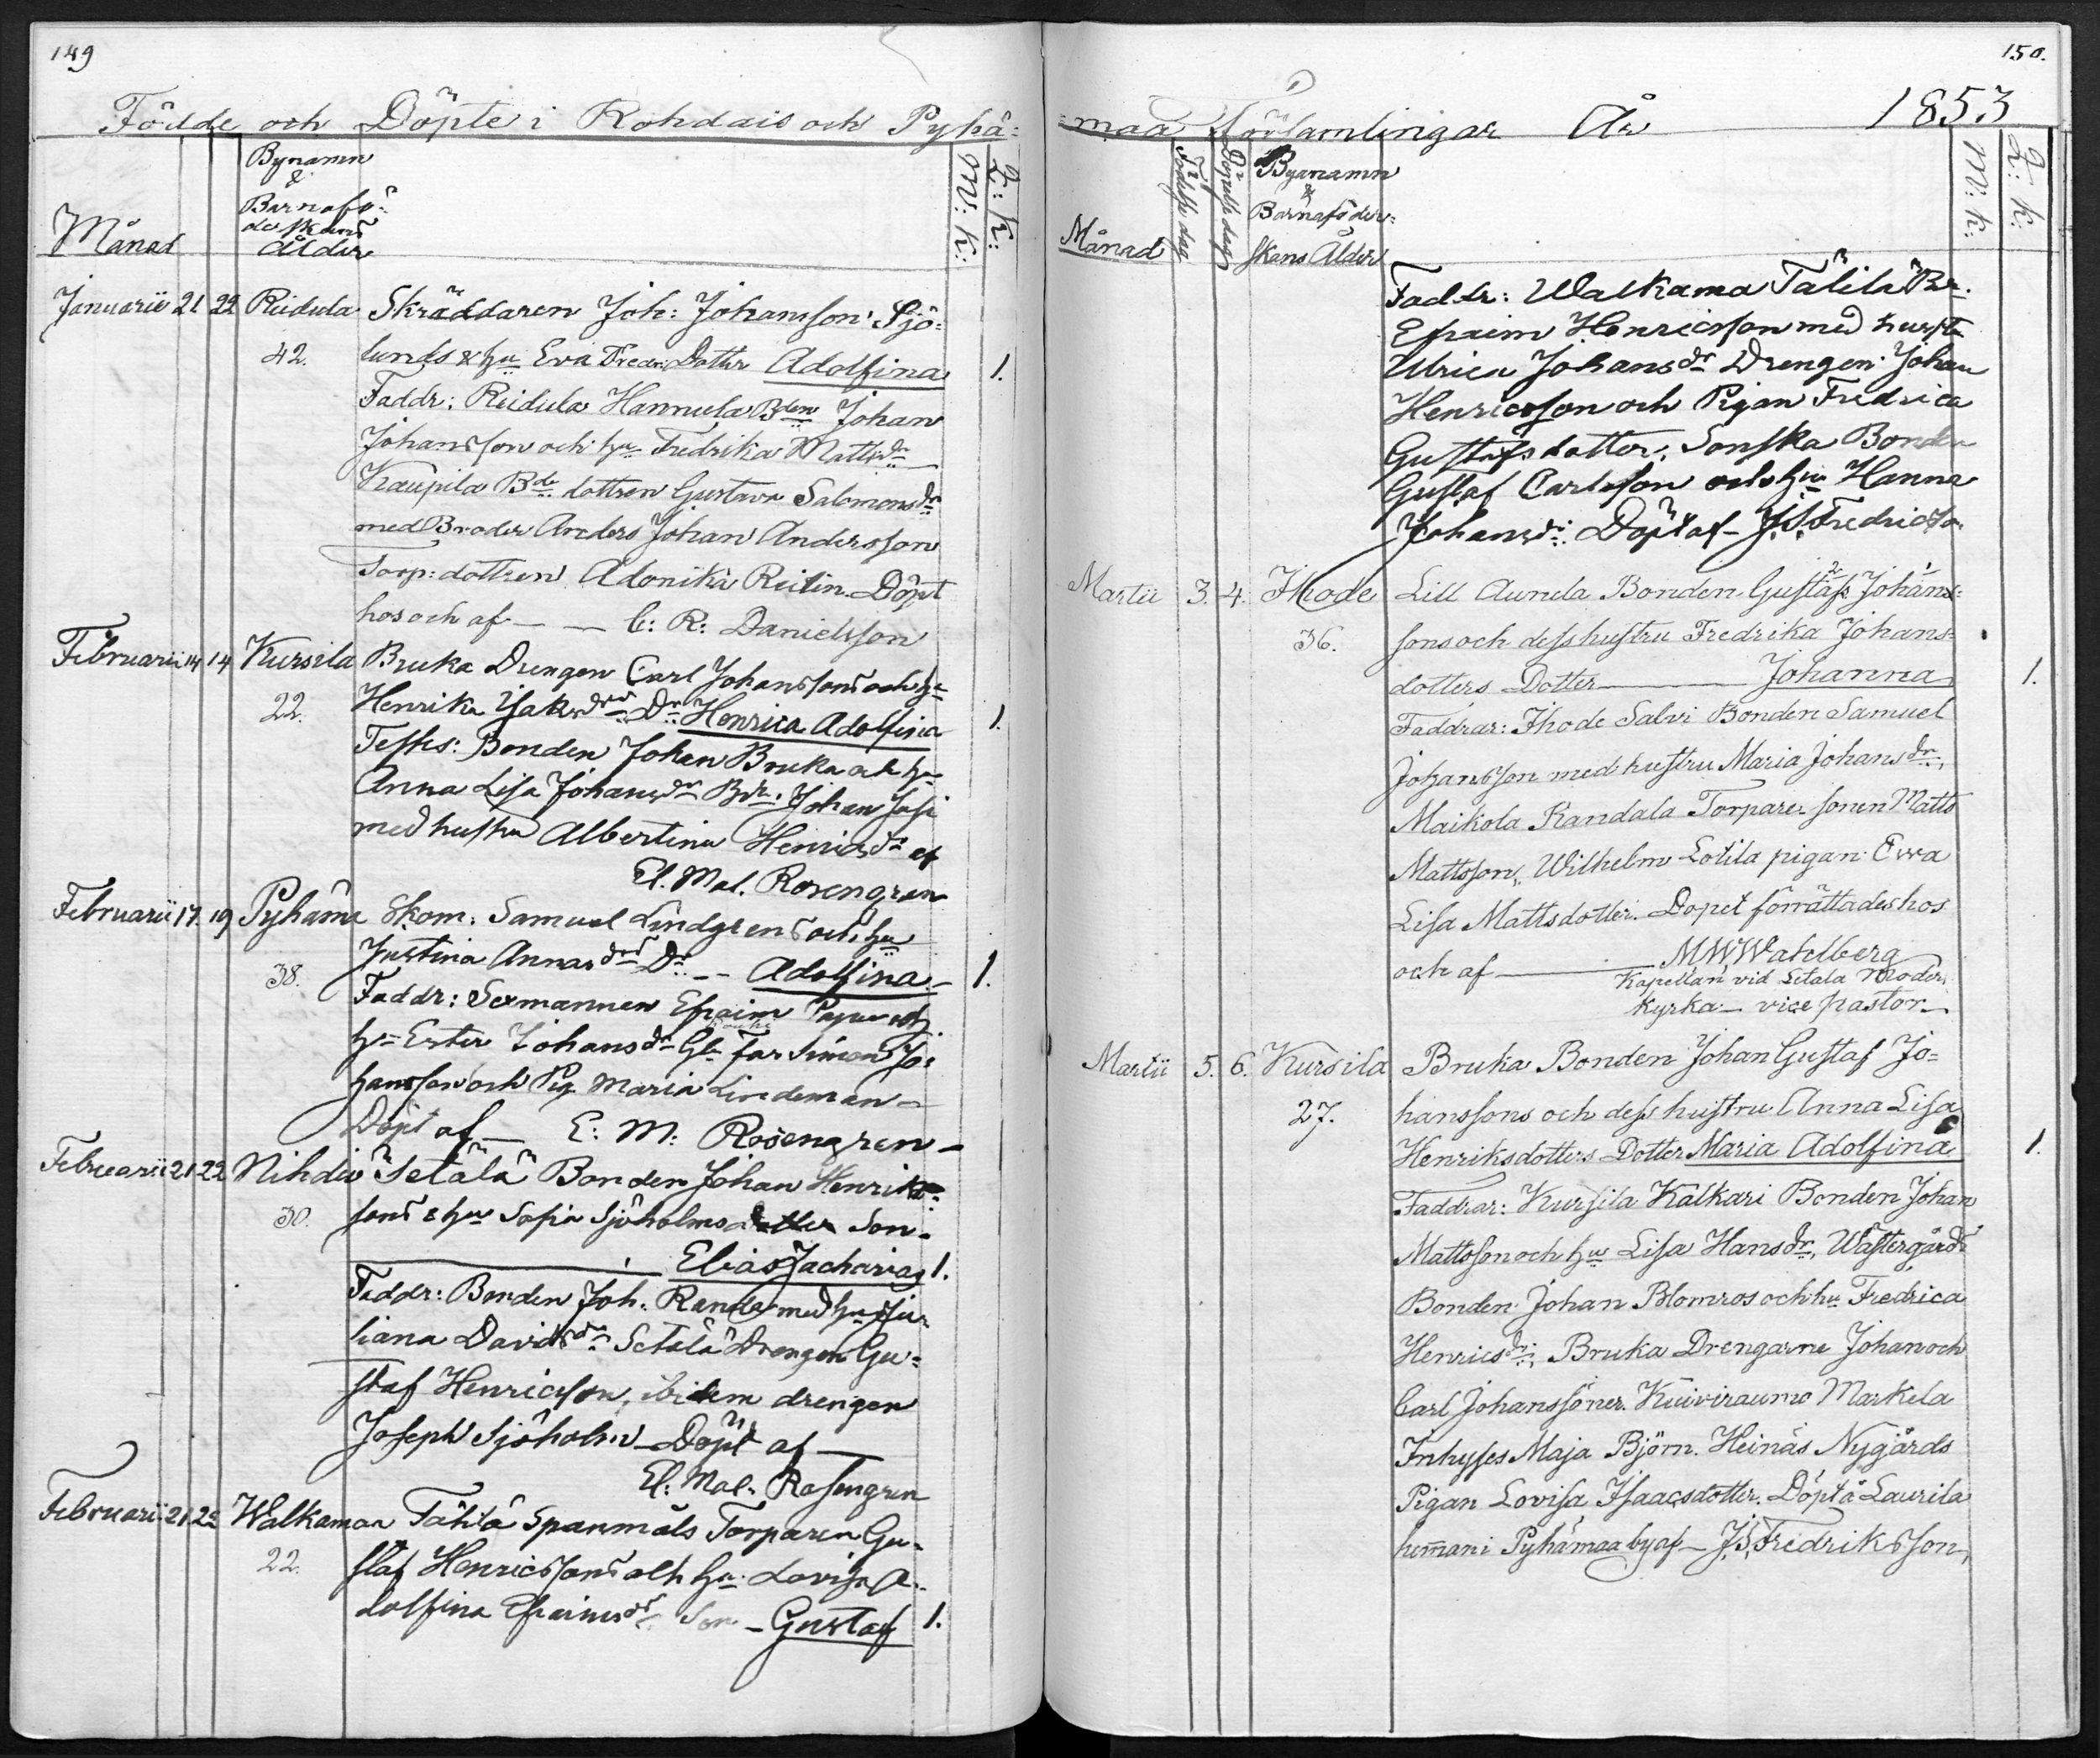 149
Födde och Döpte i Rohdais och Pyhä=
Månad
Bynamn
&
Barnafö=
derskans
Ålder
M: K:
Q: K:
Januarii 21 22 Reidula Skräddaren Joh: Johansson Sjö=
42. lunds & hu Eva Fredr: Dotter Adolfina 1.
Faddr: Reidula Hannula Bden Johan
Johansson och hu Fredrika Mattsdr
Kaupila Bde dottren Gustava Salomonsdr
med Broder Anders Johan Andersson
Torp: dottren Adonika Reilin. Döpt
hos och af — — C: R: Danielsson
Februarii 14 14 Kursila Bruka Drengen Carl Johanssons och hu
22. Henrika Isaksdrs Dr Henrica Adolfina 1.
Testes: Bonden Johan Bruka och hu
Anna Lisa Johansdr Bdn: Johan Jusi
med hustru Albertina Henricsdr af
El. Mal. Rosengren
Februarii 17. 19 Pyhäma Skom: Samuel Lindgrens och hu
38. Justina Annasdrs Dr — Adolfina — 1.
Faddr: Sexmannen Efraim och
hu Ester Johansdr Gl: Far Simon Jo=
hansson och Pig. Maria Lindeman —
Döpt af — E: M: Rosengren —
Februarii 21 22 Nihdiö Setälä Bonden Johan Henriks=
30. sons & hu Sofia Sjöholms dotter Son —
Elias Zacharias 1.
Faddr: Bonden Joh: Randa med hu Ju=
liana Davidsdr Setälä Drengen Gu=
staf Henricsson, ibidem drengen
Joseph Sjöholm — Döpt af —
El: Mal: Rosengren
Februarii 21 22 Walkamaa Tählä Spanmåls Torparen Gu=
22. staf Henricssons och hu: Lovisa A=
dolfina Efraimsdrs Son — Gustaf 1.
150.
maa Församlingar År 1853
Månad
Födelse dag
Döpelse dag
Byanamn
&
Barnaföder=
skans Ålder
M: K:
Q: K:
Faddr: Walkama Tälilä Bn.
Efraim Henricsson med hustru
Ulrica Johansdr Drengen Johan
Henricsson och Pigan Fredrica
Gustafsdotter, Sonska Bonden
Gustaf Carlsson och hu Hanna
Johansdr: Döpt af — J.S. Fredricson
Martii 3. 4. Ihode Lill Aunula Bonden Gustafs Johans=
36. sons och dess hustru Fredrika Johans=
dotters Dotter — Johanna 1.
Faddrar: Ihode Salvi Bonden Samuel
Johansson med hustru Maria Johansdr,
Maikola Randala Torpare sonen Matts
Mattsson, Wilhelm Lolila pigan Ewa
Lisa Mattsdotter. Dopet förrättades hos
och af — MW Wahlberg
Kapellan vid Letala Moder
kyrka — vice pastor —
Martii 5. 6. Kursila Bruka Bonden Johan Gustaf Jo=
27. hanssons och dess hustru Anna Lisa
Henriksdotters Dotter Maria Adolfina 1.
Faddrar: Kursila Kalkari Bonden Johan
Mattsson och hu Lisa Hansdr, Wästergårds
Bonden Johan Blomros och hu Fredrica
Henricsdr; Bruka Drengarne Johan och
Carl Johanssöner. Kuiviraumo Markela
Inhyses Maja Björn. Heinäs Nygårds
Pigan Lovisa Isaacsdotter. Döpt å Laurila
heman i Pyhämaa by af — J.S. Fredriksson,